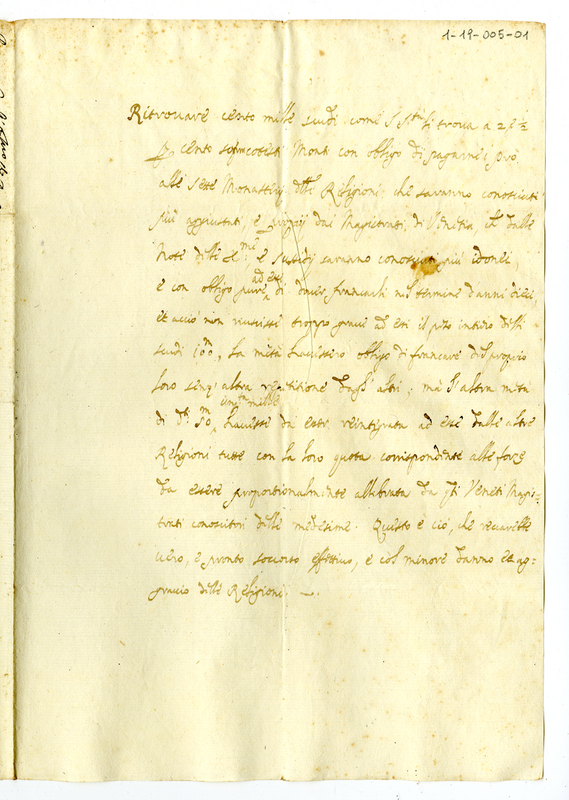 1-19-005-01
Ritrovare cento mille scudi come S. Stà si trova a 2 e ½
per cento sopra cotesti Monti con obligo di pagarne i prò
alle Sette Monasterij delle Religioni, che saranno conosciuti
più aggiustati, e dai Magistrati di Venetia, et dalle
Note delle e sussidij saranno conosciuti più idonei,
e con obligo pure ad esse di dover francarli nel termine d'anni dieci,
et acciò non riuscisse troppo grave ad essi il peso intiero delli
scudi 100m, la metà havessero obligo di francare del proprio
loro senz'altra repetitione dagl'altri; mà l'altra metà
di di 50m cinqta mille havesse da esser reintegrata ad esse dalle altre
Religioni tutte con la loro quota corrispondente alle forze
da essere proporzionalmente allibrata da Veneti Magis=
trati conoscitori delle medesime. Questo è ciò, che recarebbe
vero, e pronto soccorso effettivo, e col minore danno et ag=
gravio delle Religioni.